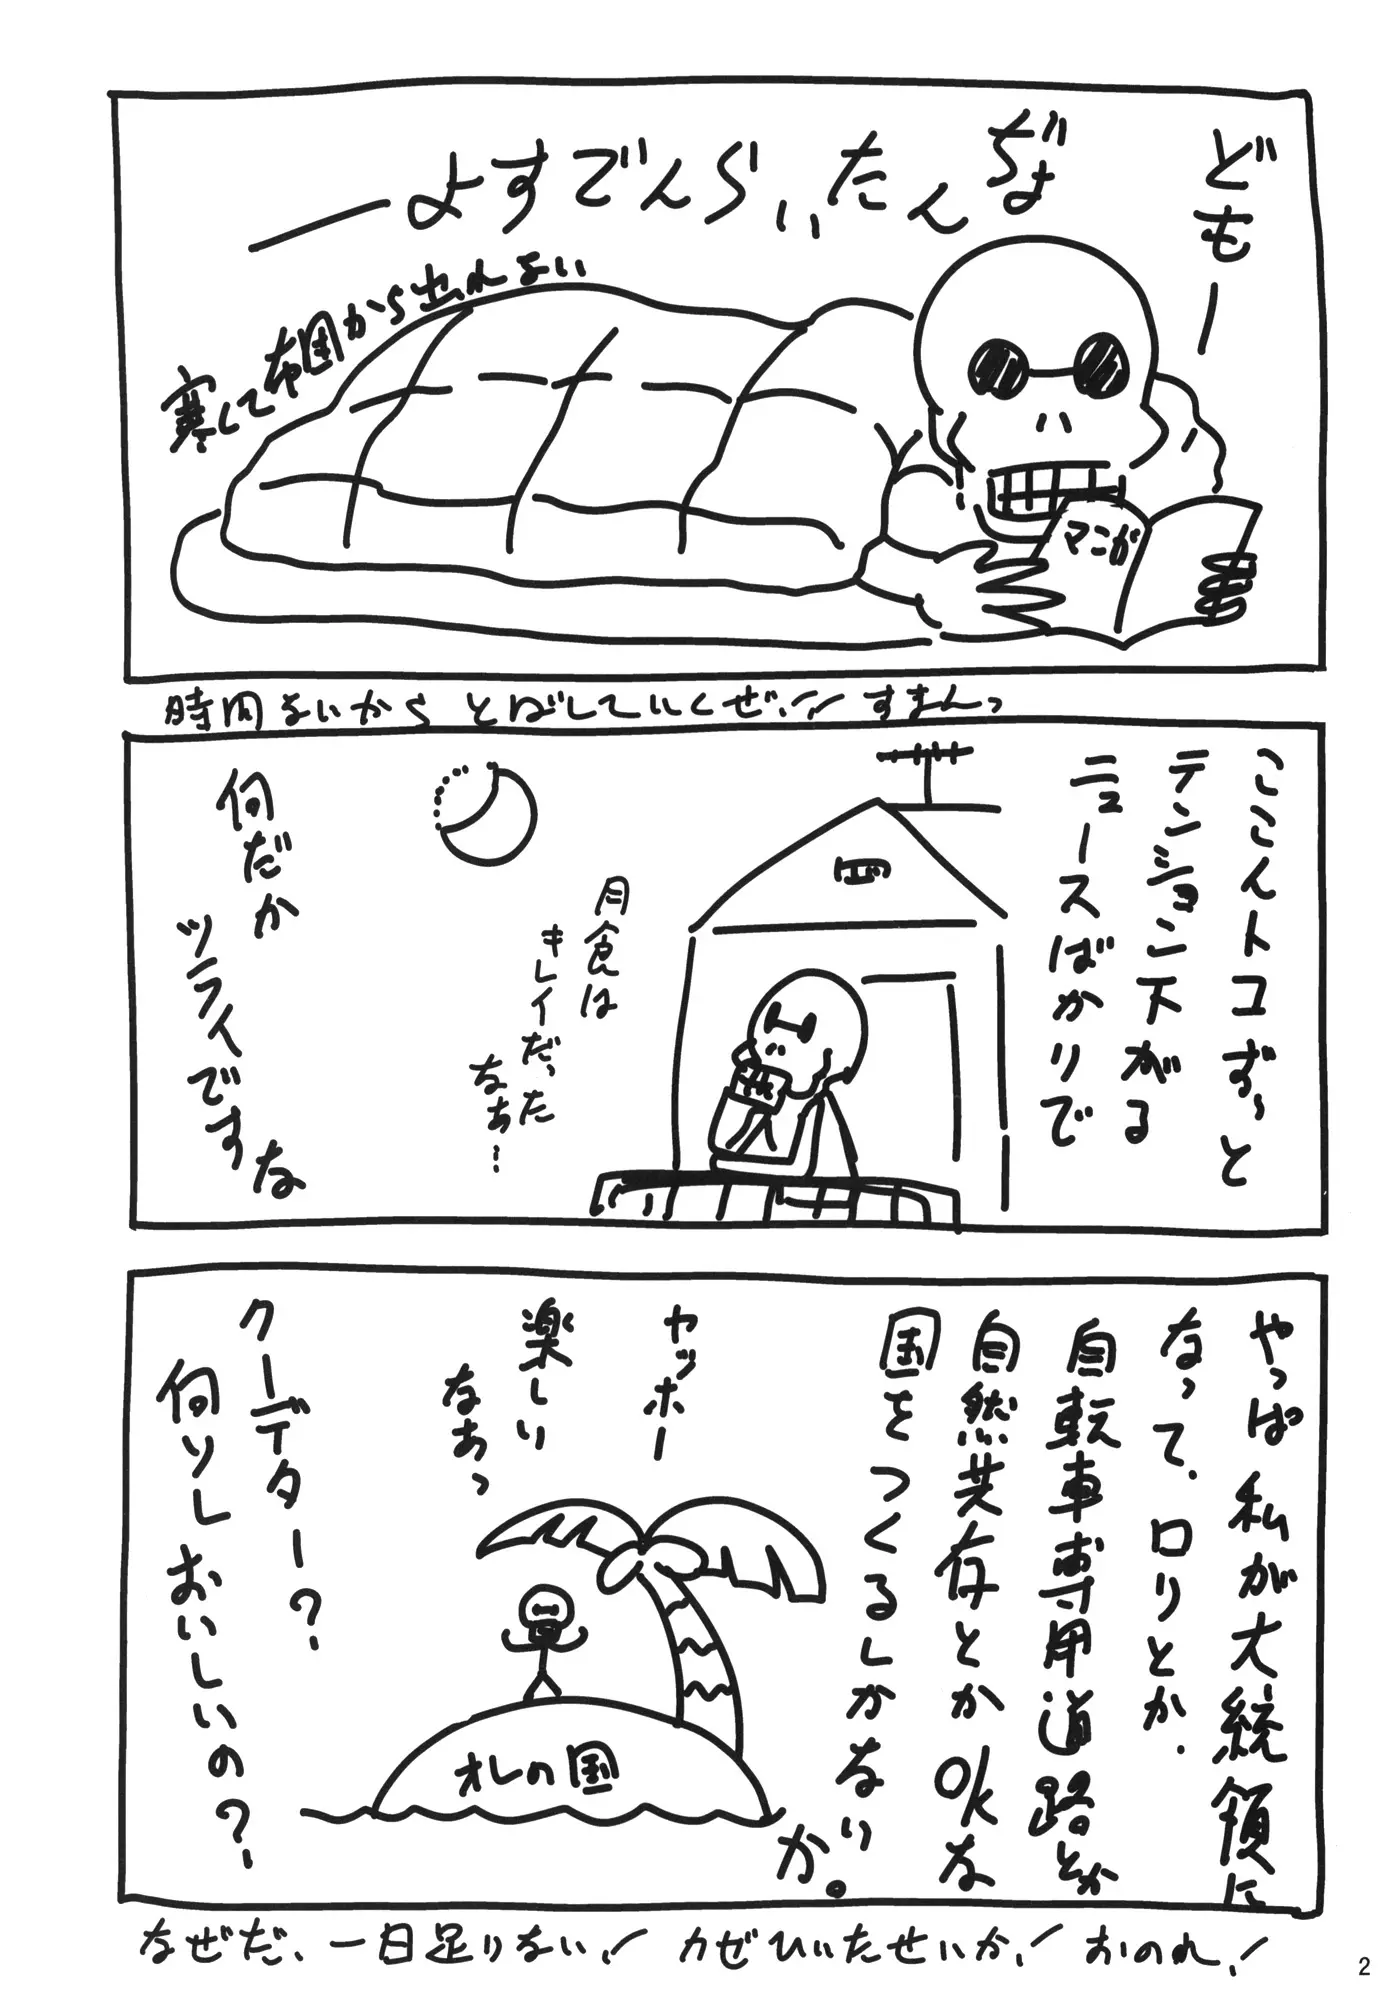 どもー
ぢょ
んたいらんですよー
寒くて布団から出れない
マンガ
時間ないからとばしていくぜ!! すまんっ
ここんトコずーっと
テンション下がる
ニュースばかりで
月食は
キレイだった
なぁ…
何だか
ツライですな
やっぱ私が大統領に
なって、ロリとか、
自転車専用道路とか
自然共存とかOKな
国をつくるしかない
か。
ヤッホー
楽しい
なあっ
オレの国
クーデター?
何ソレおいしいの?
なぜだ、一日足りない! カぜひいたせいか! おのれ!
2